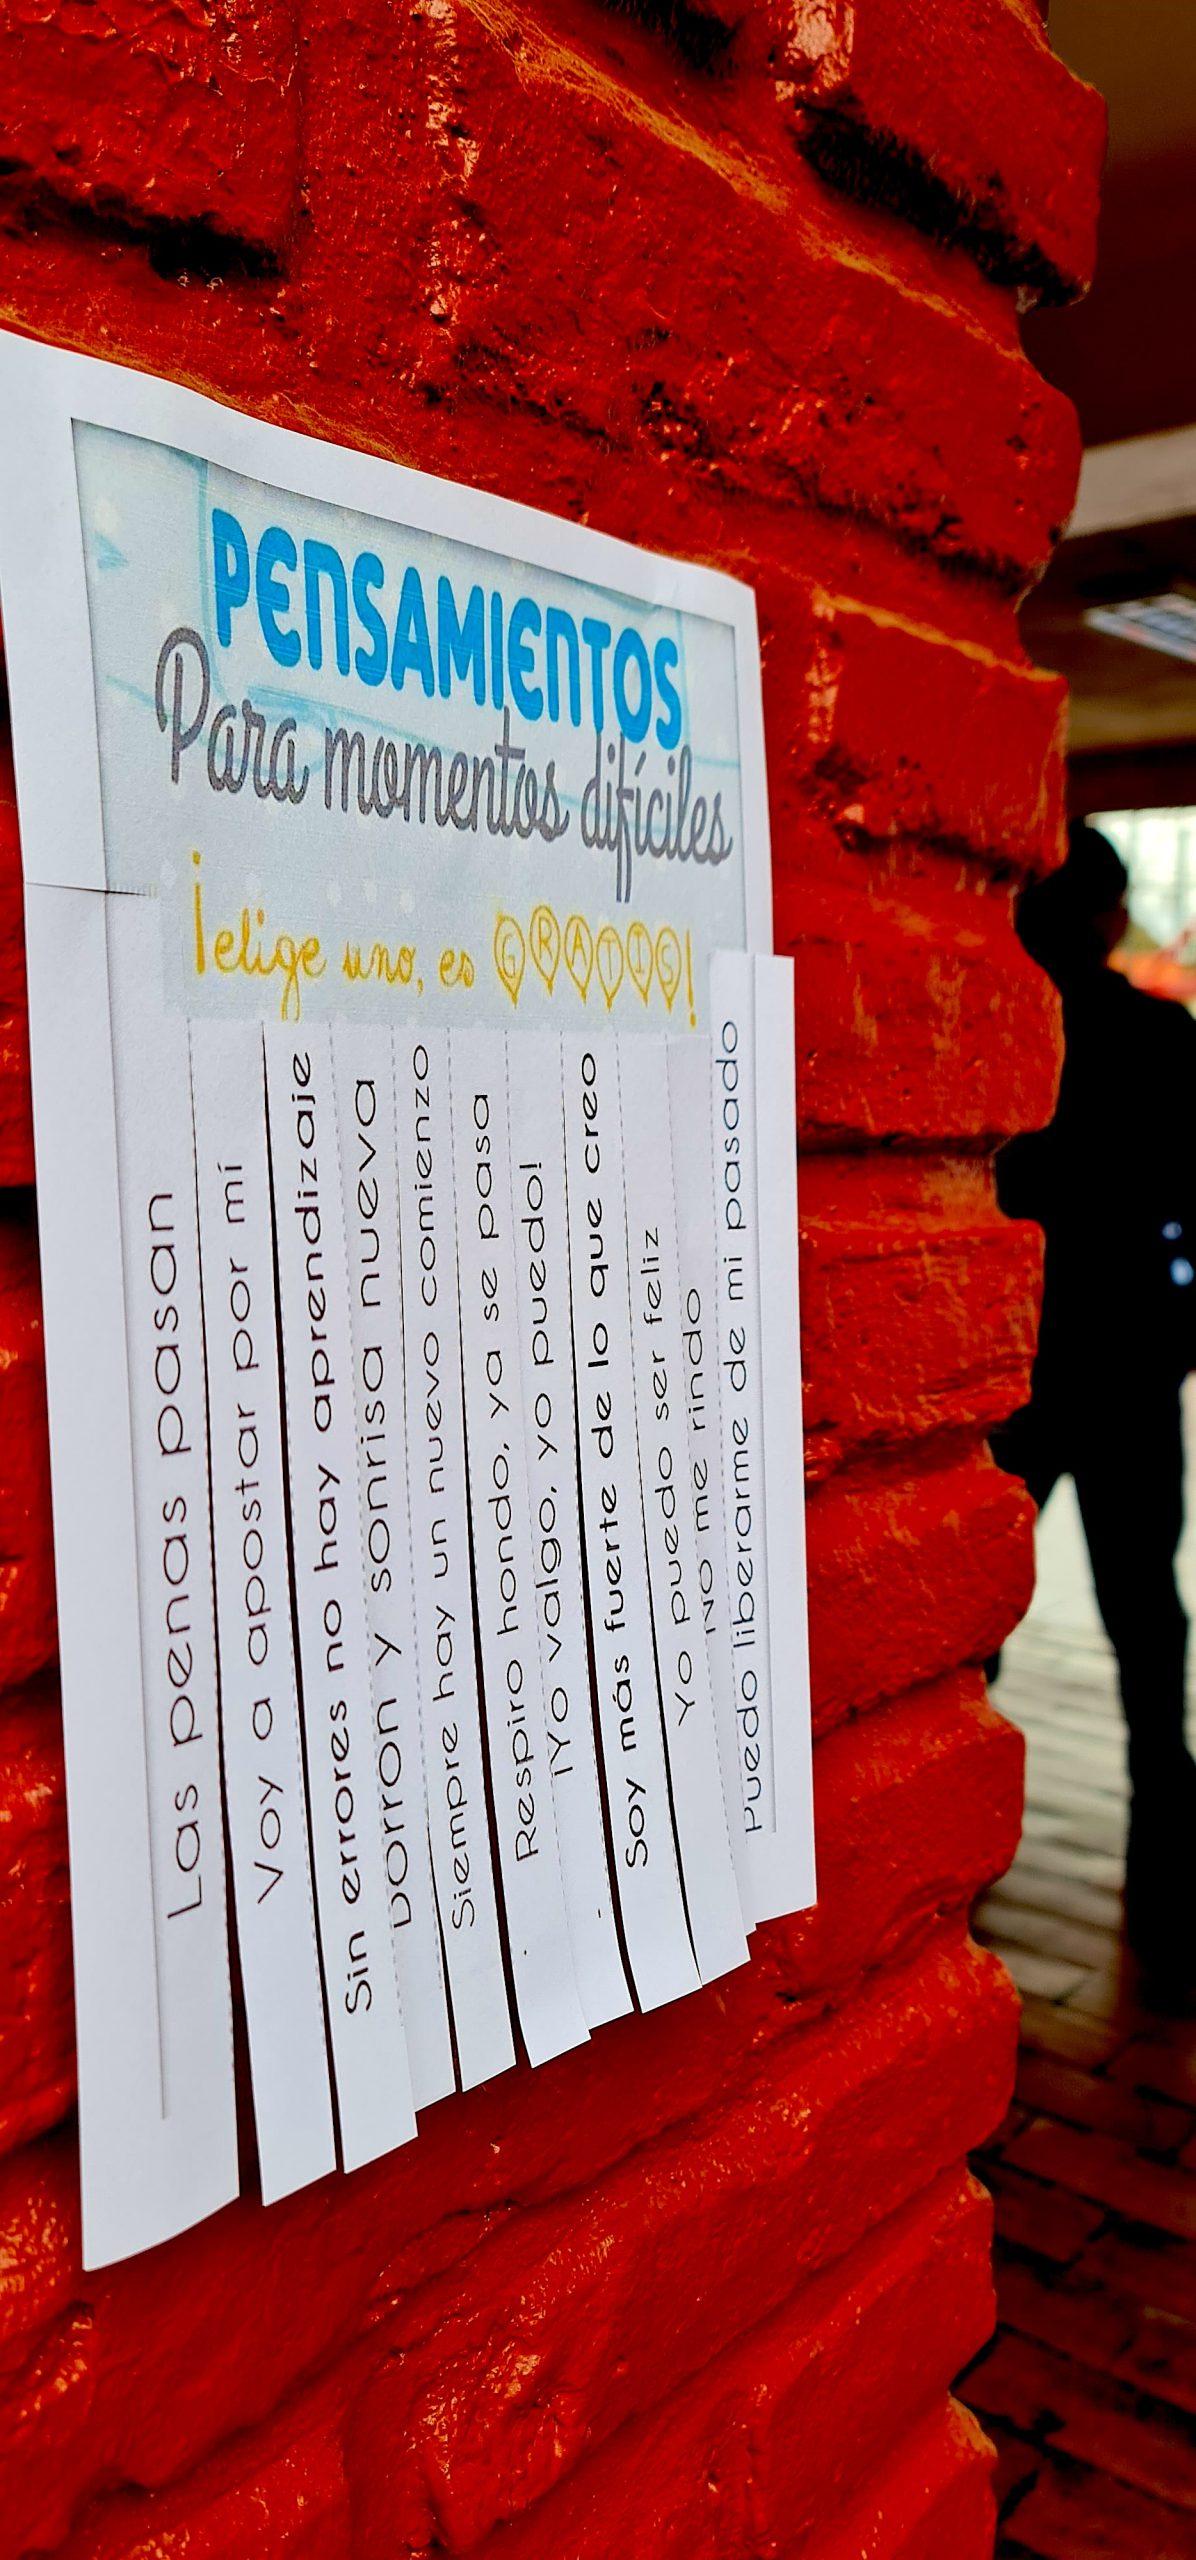 PENSAMIENTOS
Para momentos difíciles
¡elige uno, es GRATIS!
Las penas pasan
Voy a apostar por mí
Sin errores no hay aprendizaje
Borrón y sonrisa nueva
Siempre hay un nuevo comienzo
Respiro hondo, ya se pasa
¡Yo valgo, yo puedo!
Soy más fuerte de lo que creo
Yo puedo ser feliz
No me rindo
Puedo liberarme de mi pasado